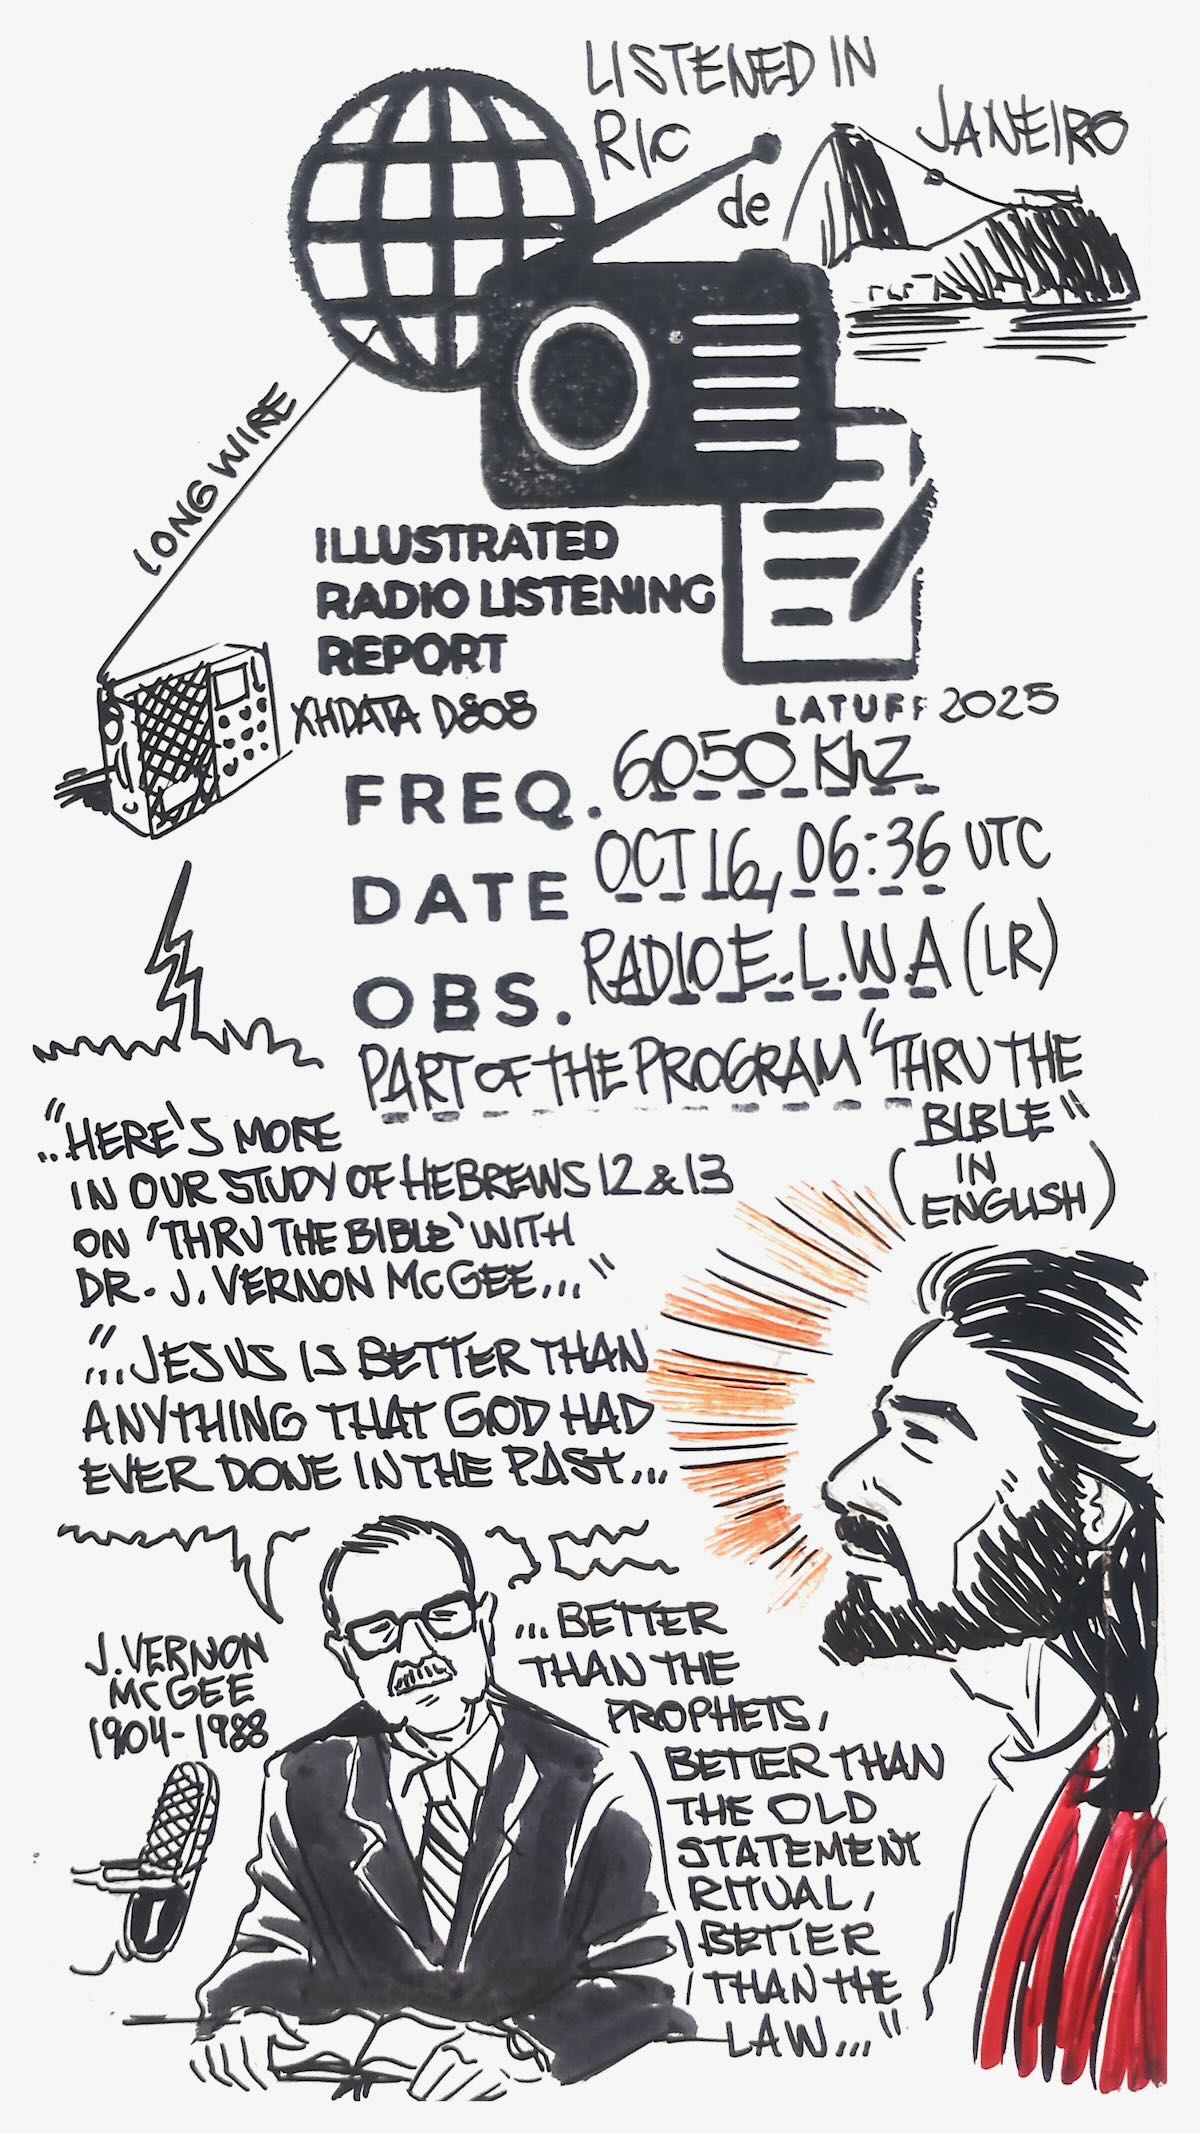 LISTENED IN
RIO
de
JANEIRO
LONG WIRE
ILLUSTRATED
RADIO LISTENING
REPORT
XHDATA D808
LATUFF 2025
FREQ. 6050 KhZ
DATE OCT 16, 06:36 UTC
OBS. RADIO E.L.W.A (LR)
PART OF THE PROGRAM "THRU THE
BIBLE"
(IN
ENGLISH)
"...HERE'S MORE
IN OUR STUDY OF HEBREWS 12 & 13
ON 'THRU THE BIBLE' WITH
DR. J. VERNON McGEE..."
"...JESUS IS BETTER THAN
ANYTHING THAT GOD HAD
EVER DONE IN THE PAST...
J. VERNON
McGEE
1904-1988
...BETTER
THAN THE
PROPHETS,
BETTER THAN
THE OLD
STATEMENT
RITUAL,
BETTER
THAN THE
LAW..."